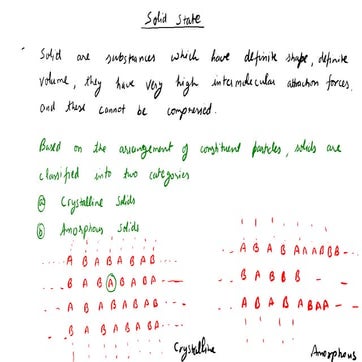 Solid State
Solid are substances which have definite shape, definite
volume, they have very high intermolecular attraction forces,
and these cannot be compressed.
Based on the arrangement of constituent particles, solids are
classified into two categories
a Crystalline Solids
b Amorphous Solids
A B A B A B A B
B A B A B A B A
A B A B A B A B
B A B A B A B A
Crystalline
A B A B A B A A B B B
B A B B B
A B A B A B B A A
Amorphous